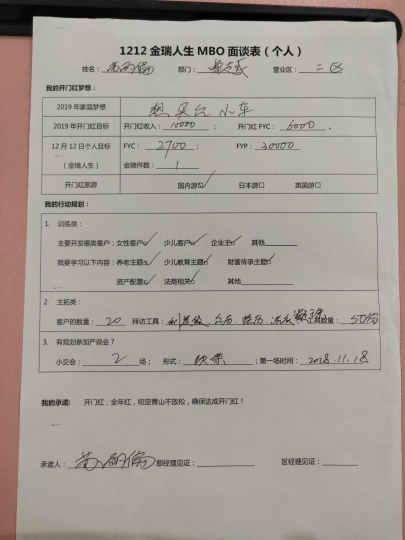 1212 金瑞人生 MBO 面谈表（个人）
姓名： 部门： 营业区： 二区
我的开门红梦想：
2019 年家庭梦想 想买台小车
2019 年开门红目标 开门红收入：10000 ； 开门红 FYC： 6000 。
12 月 12 日个人目标 FYC： 2700 ； FYP： 30000
（金瑞人生） 金瑞件数： 1
开门红旅游 国内游☑ 日本游□ 英国游□
我的行动规划：
1. 训练类：
主要开发哪类客户：女性客户✓ 少儿客户✓ 企业主✓ 其他
我要学习以下内容：养老主题✓ 少儿教育主题✓ 财富传承主题✓
资产配置✓ 法商相关✓ 其他
2. 主拓类：
客户的数量： 20 拜访工具： 台历、挂历、 工具数量： 50份
3. 有规划参加产说会？
小交会： 2 场； 形式： ；第一场时间： 2018.11.18
我的承诺： 开门红，全年红，咬定青山不放松，确保达成开门红！
承诺人： 部经理见证： 区经理见证：